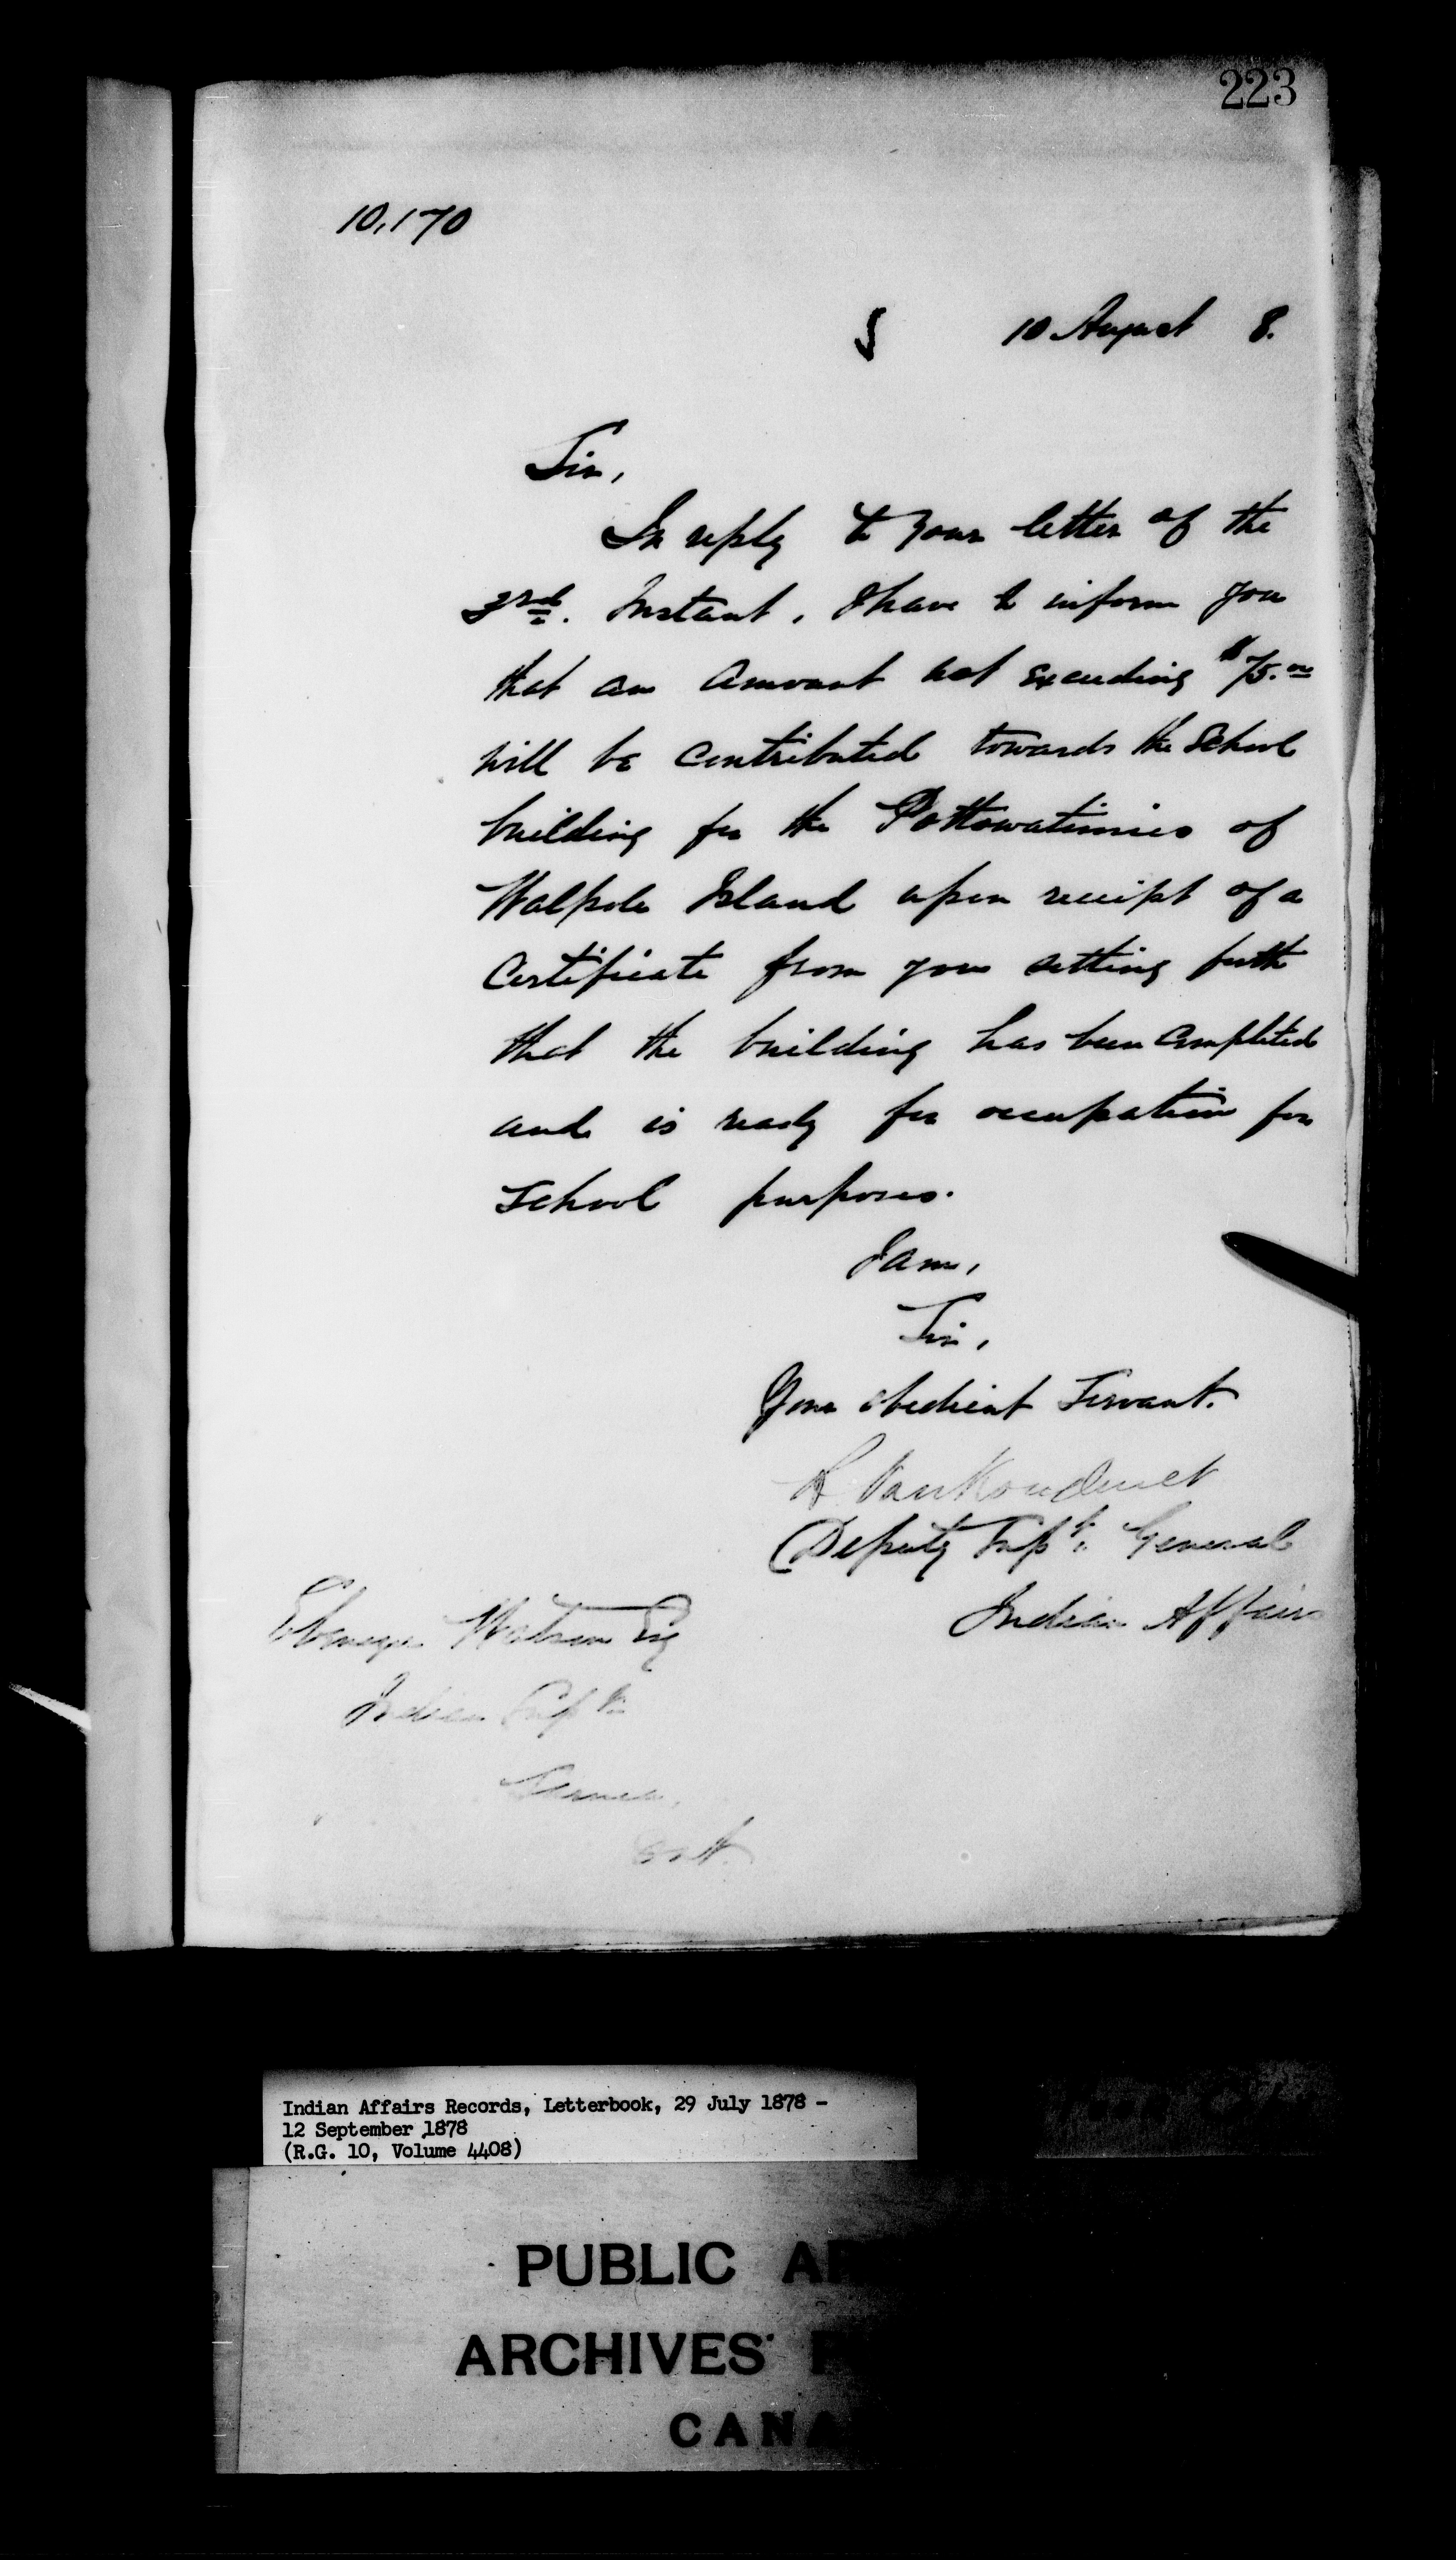 223
10,170
10 August 8.
Sir,
In reply to your letter of the
2nd. Instant, I have to inform you
that an amount not exceeding $75.00
will be contributed towards the School
building for the Pottowatimies of
Walpole Island upon receipt of a
Certificate from you setting forth
that the building has been completed
and is ready for occupation for
School purposes.
I am,
Sir,
Your obedient Servant.
L VanKoughnet
Deputy Supt. General
Indian Affairs
Ebenezer Watson Esq
Indian Supt.
Sarnia,
Ont.
Indian Affairs Records, Letterbook, 29 July 1878 -
12 September 1878
(R.G. 10, Volume 4408)
PUBLIC AR
ARCHIVES P
CANA